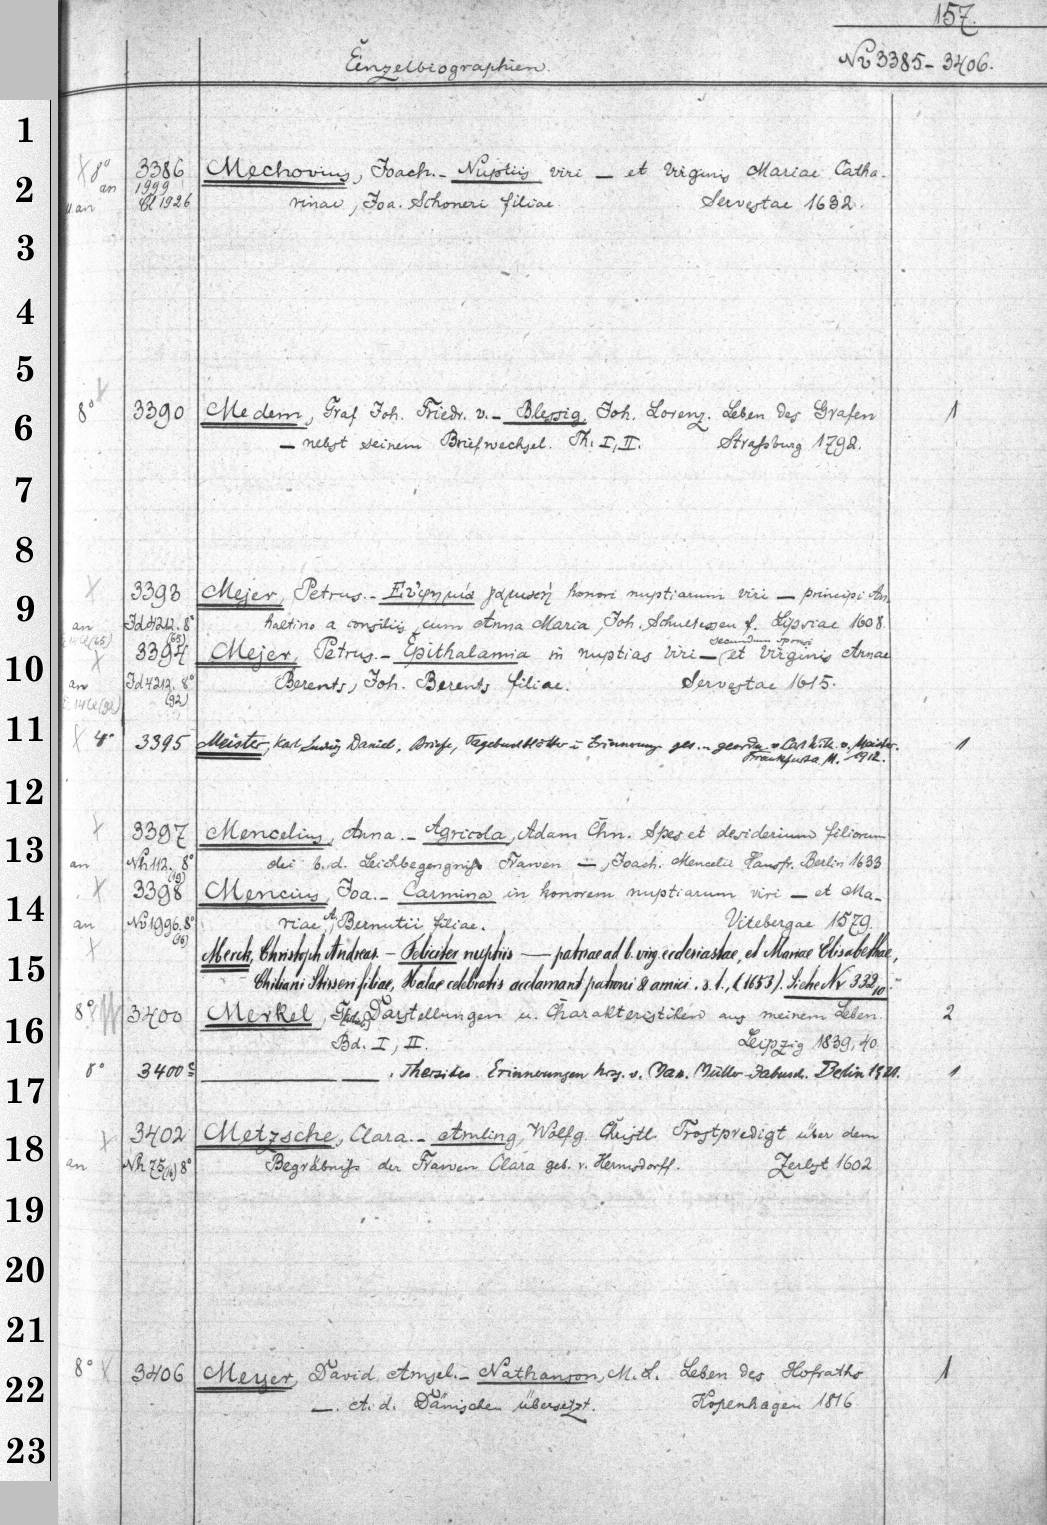 157.
Einzelbiographien.
№ 3385-3406.
1
8° 3386 Mechovius, Joach. - Nuptiis viri — et Virginis Mariae Catha-
an 1999
2
u an 1926 rinae, Joa. Schoneri filiae. Servestae 1632.
3
4
5
8° 3390 Medem, Graf Joh. Friedr. v. - Blessig, Joh. Lorenz. Leben des Grafen 1
6
— nebst seinem Briefwechsel. Th. I, II. Straßburg 1792.
7
8
3393 Mejer, Petrus. - Εὐφημία γαμικὴ honori nuptiarum viri — principi An-
9
an Id 4212. 8° haltino a consiliis, cum Anna Maria, Joh. f. Lipsiae 1608.
(65)
secundum sponsi
10
3394 Mejer, Petrus. - Epithalamia in nuptias viri — (et virginis Annae
an Id 4212. 8° Berents, Joh. Berents filiae. Servestae 1615.
(92)
11
4° 3395 Meister, Karl Ludwig Daniel, Briefe, Tagebuchblätter u Erinnerung. v. Meister. 1
Frankfurt a. M. 1912.
12
3397 Mencelius, Anna. - Agricola, Adam Chn. Spes et desiderium filiorum
13
an Nh 112. 8° dei b. d. Leichbegengniß Frawen —, Joach. Mencelii Hausfr. Berlin 1633
(19)
3398 Mencius, Joa. - Carmina in honorem nuptiarum viri — et Ma-
14
an No 1996. 8° riae A, Bernutii filiae. Vitebergae 1579.
(96)
Merck, Christoph Andreas - Feliciter nuptiis — patriae ad b. virg. ecclesiastae, et Mariae Elisabethae,
15
Chiliani Stissen filiae, Halae celebratis acclamant patroni & amici. s. l., (1653). Siehe Nr 332,10.
8° 3400 Merkel, Darstellungen u. Charakteristiken aus meinem Leben. 2
16
Bd. I, II. Leipzig 1839, 40.
8° 3400 a — . Thersites. Erinnerungen hrsg. v. Max. Müller-Jabusch. Berlin 1921. 1
17
3402 Metzsche, Clara. - Amling, Wolfg. Christl. Trostpredigt über dem
18
an Nh 75(6) 8° Begräbniß der Frawen Clara geb. v. Hermsdorff. Zerbst 1602
19
20
21
8° 3406 Meyer, David Amsel. - Nathanson, M. L. Leben des Hofraths 1
22
—. A. d. Dänischen übersetzt. Kopenhagen 1816
23